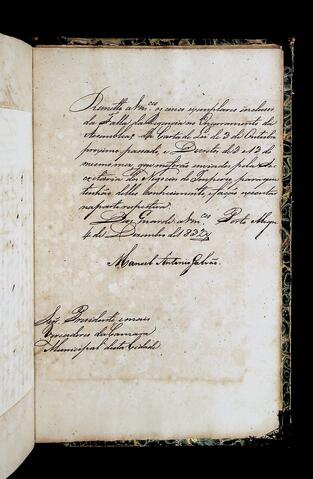 Remetto a Vm.ces os cinco exemplares inclusos
da Falla da Regencia no Encerramento da
Assemblea, da Carta de Lei de 3 de Outubro
proximo passado, e Decreto de 3 e 13 do
mesmo mez, que me forão enviados pela Se
cretaria dos Negocios do Imperio para que
tenhão delles conhecimento, e fação executar
na parte respectiva.
Deos Guarde a Vm.ces Porto Alegre
4 de Dezembro de 1832
Manoel Antonio Galvão.
Snr.s Presidente e mais
Vereadores da Camara
Municipal desta Cidade